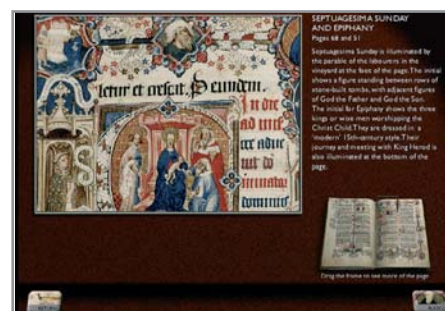 letur et crescit. Per eundem.
In die
ad miss
tut do
dominus
SEPTUAGESIMA SUNDAY
AND EPIPHANY
Pages 68 and 51
Septuagesima Sunday is illuminated by
the parable of the labourers in the
vineyard at the foot of the page. The initial
shows a figure standing between rows of
stone-built tombs, with adjacent figures
of God the Father and God the Son.
The initial for Epiphany shows the three
kings or wise men worshipping the
Christ Child. They are dressed in a
'modern' 15th-century style. Their
journey and meeting with King Herod is
also illuminated at the bottom of the
page.
Drag the frame to see more of the page